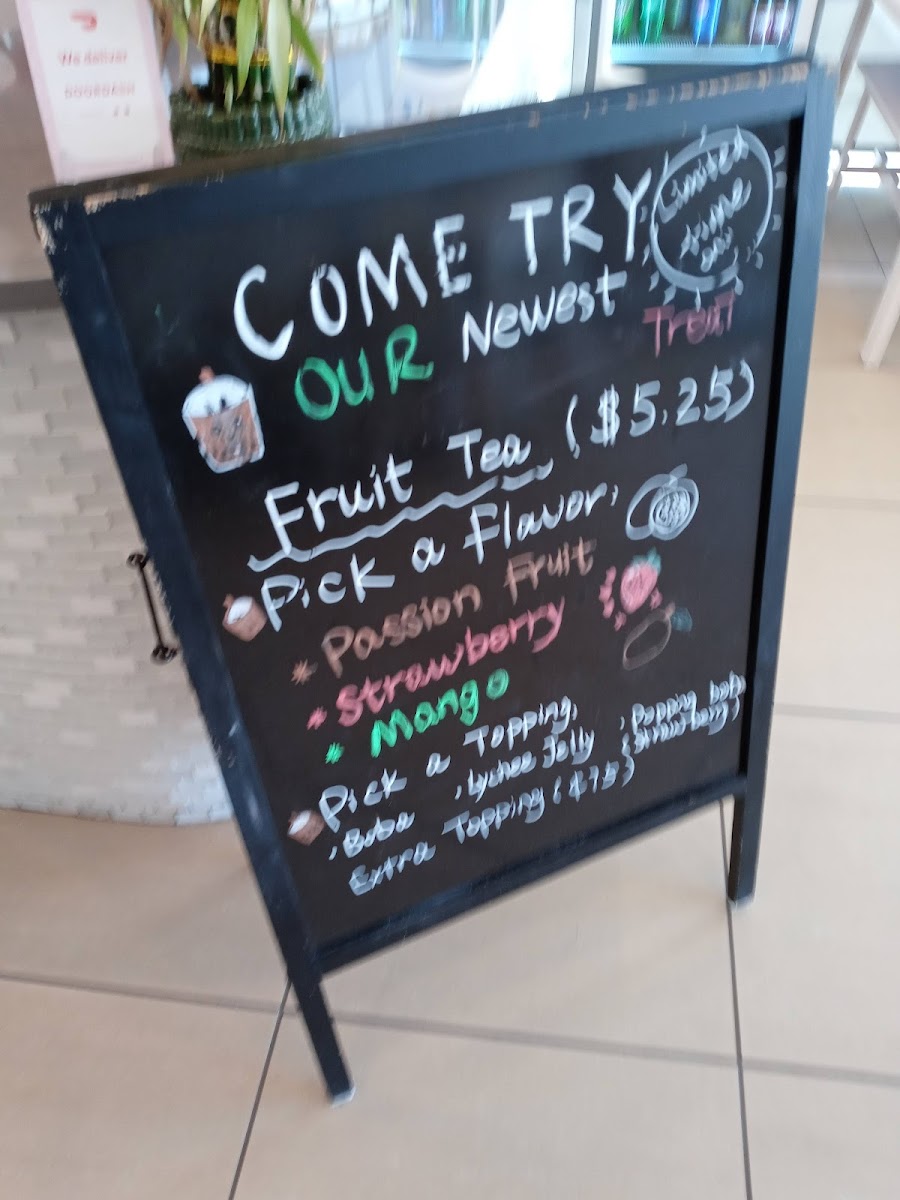 We deliver
DOORDASH
COME TRY
Limited
time
OUR Newest Treat
Fruit Tea ($5.25)
Pick a Flavor,
* Passion Fruit
* Strawberry
* Mango
Pick a Topping,
, Boba , Lychee Jelly , Popping boba
(strawberry)
Extra Topping ($.75)